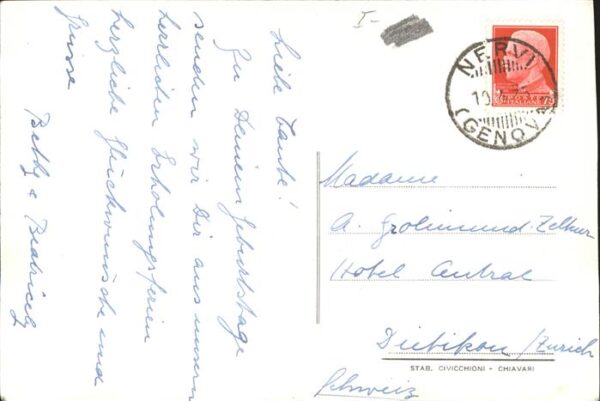 Liebe Tante!
Zu Deinem Geburtstage
senden wir Dir aus unsern
herrlichen Erholungsferien
herzliche Glückwünsche und
Grüsse
Betty & Beatrice
I-
NERVI
(GENOVA)
Madame
A. Grolimund-Zelkner
Hotel Central
Dietikon/Zürich
Schweiz
STAB. CIVICCHIONI - CHIAVARI